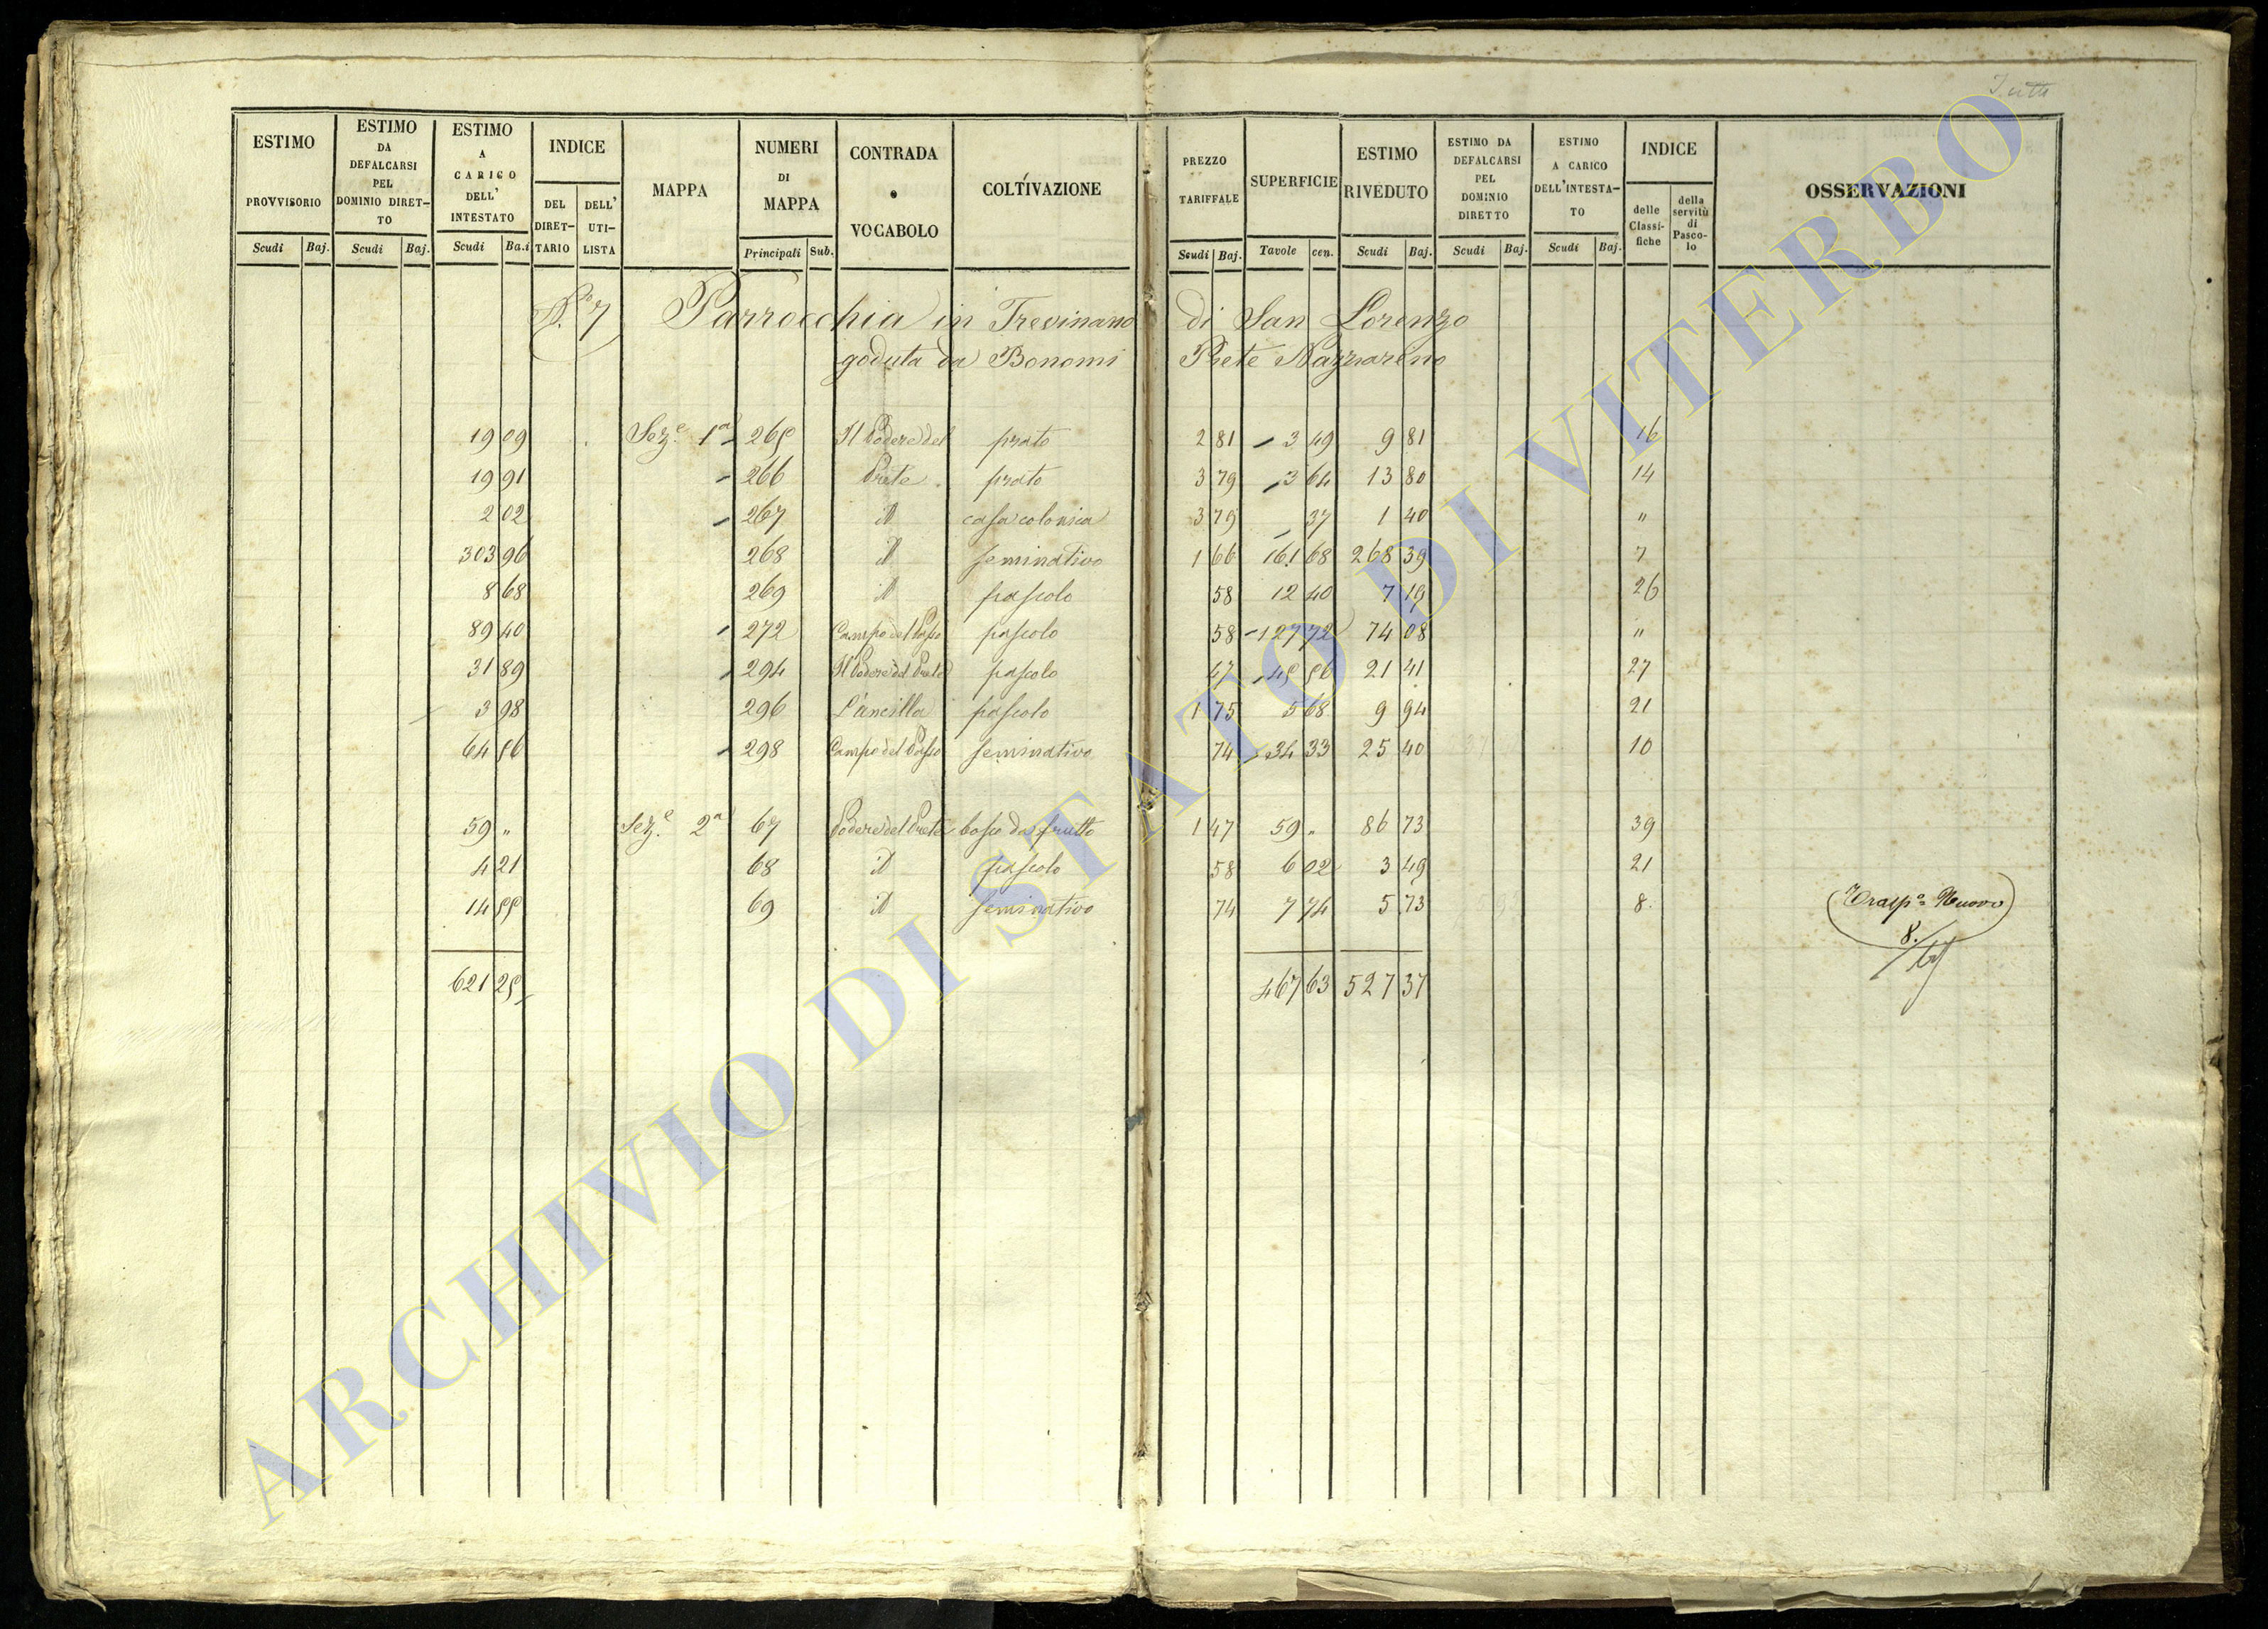 Tutti
ESTIMO PROVVISORIO Scudi Baj.
ESTIMO DA DEFALCARSI PEL DOMINIO DIRETTO Scudi Baj.
ESTIMO A CARICO DELL' INTESTATO Scudi Ba.i
INDICE DEL DIRET-TARIO DELL' UTI-LISTA
MAPPA
NUMERI DI MAPPA Principali Sub.
CONTRADA o VOCABOLO
COLTIVAZIONE
PREZZO TARIFFALE Scudi Baj.
SUPERFICIE Tavole cen.
ESTIMO RIVEDUTO Scudi Baj.
ESTIMO DA DEFALCARSI PEL DOMINIO DIRETTO Scudi Baj.
ESTIMO A CARICO DELL'INTESTA-TO Scudi Baj.
INDICE delle Classi-fiche della servitù di Pasco-lo
OSSERVAZIONI
N.º 7 Parrocchia in Trevinano di San Lorenzo
goduta da Bonomi Prete Nazzareno
19 09 Sez.e 1a 265 Il Podere del prato 2 81 3 49 9 81 16
19 91 266 Prete prato 3 79 3 64 13 80 14
2 02 267 id casa colonica 3 79 37 1 40 "
303 96 268 id seminativo 1 66 161 68 268 39 7
8 68 269 id pascolo 58 12 40 7 19 26
89 40 272 Campo del Passo pascolo 58 127 72 74 08 "
31 89 294 Il Podere del Prete pascolo 47 45 56 21 41 27
3 98 296 L'ancilla pascolo 1 75 5 68 9 94 21
64 56 298 Campo del Passo seminativo 74 34 33 25 40 10
59 " Sez.e 2a 67 Podere del Prete bosco da frutto 1 47 59 " 86 73 39
4 21 68 id pascolo 58 6 02 3 49 21
14 55 69 id seminativo 74 7 74 5 73 8 Trasp.o Nuovo
8.
621 25 467 63 527 37
ARCHIVIO DI STATO DI VITERBO